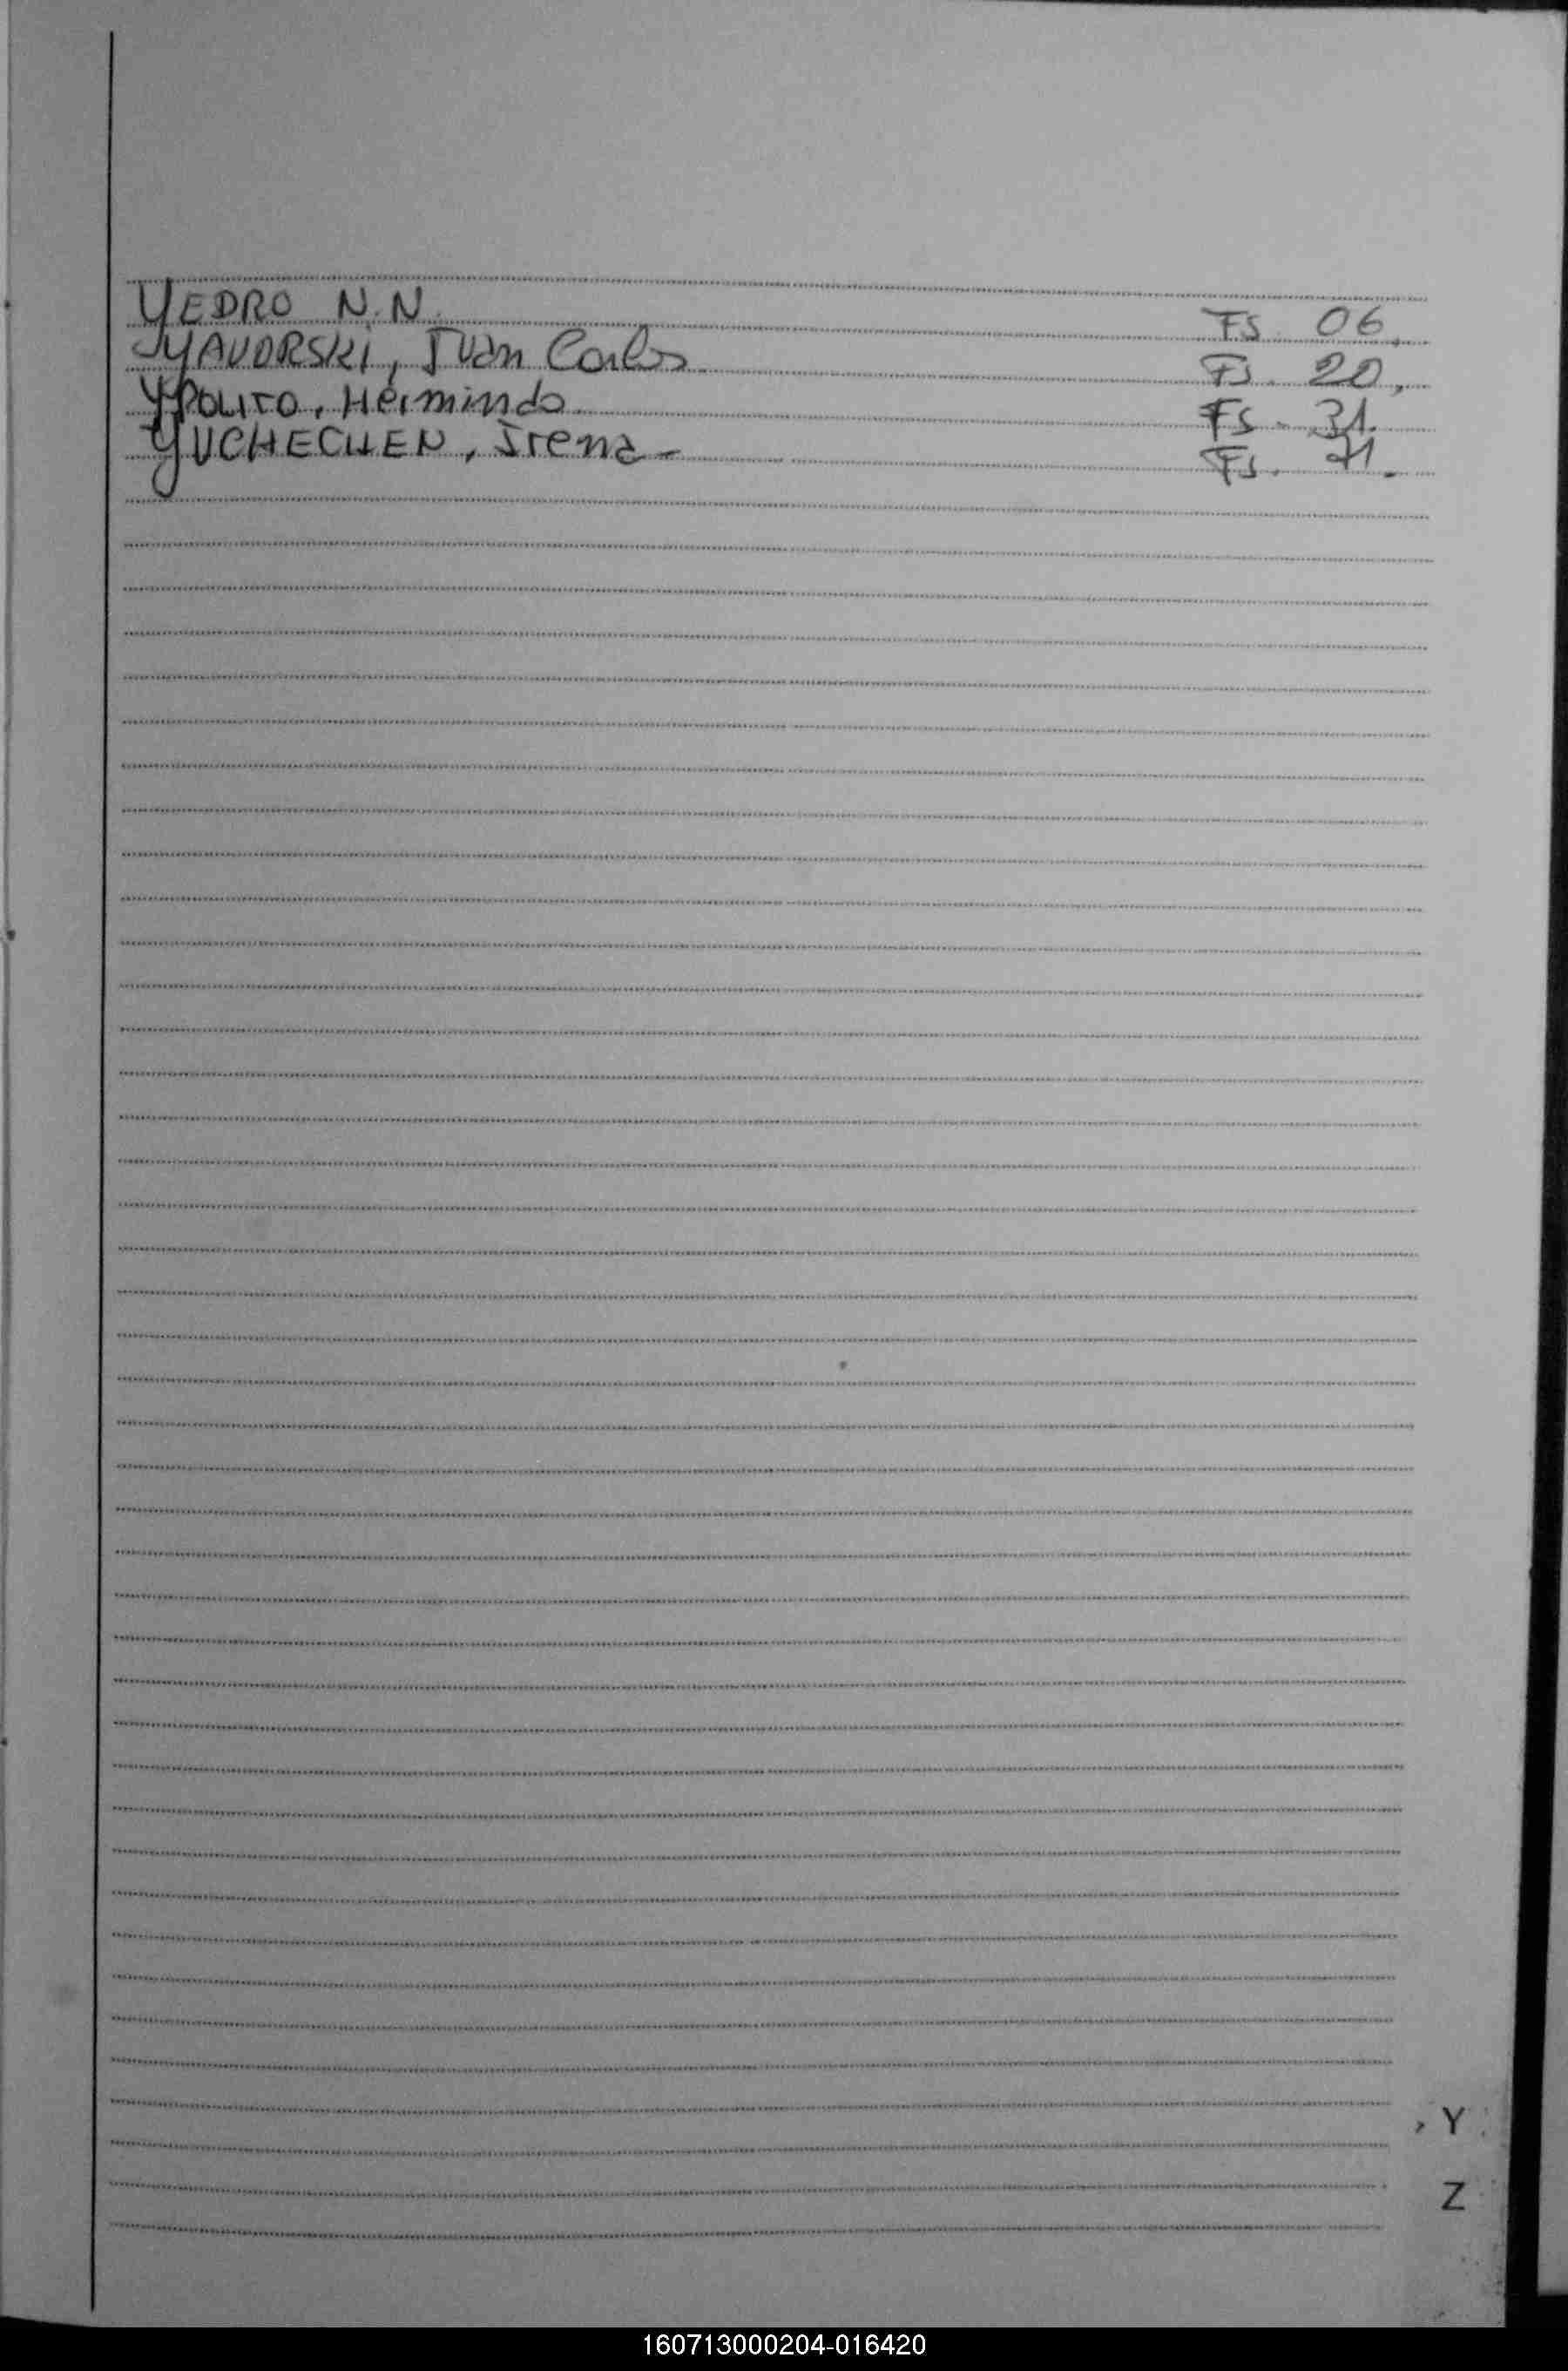 YEDRO N.N. Fs. 06.
YAVORSKI, Juan Carlos Fs. 20,
YPOLITO, Hermindo Fs. 31.
YUCHECHEN, Irena - Fs. 71.
Y
Z
160713000204-016420